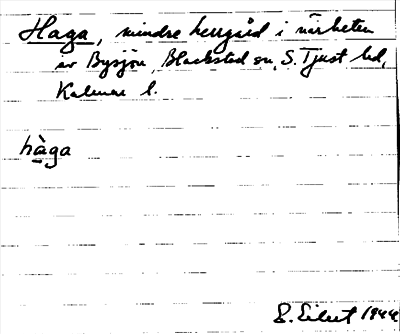 Haga, mindre herrgård i närheten
av Bysjön, Blackstad sn, S. Tjust hd,
Kalmar l.
hàga
1944